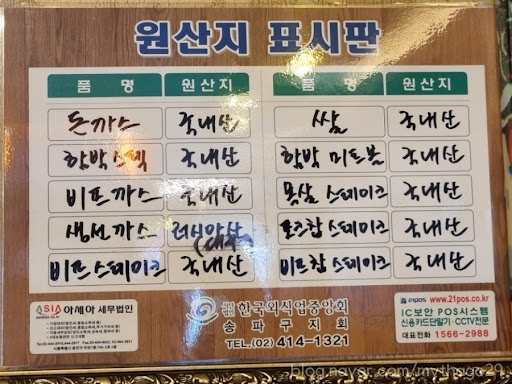 원산지 표시판
품 명 원산지 품 명 원산지
돈까스 국내산 쌀 국내산
함박스텍 국내산 함박 미트볼 국내산
비프까스 국내산 목살 스테이크 국내산
생선까스 러시아산 포크찹 스테이크 국내산
(대구)
비프스테이크 국내산 비프찹 스테이크 국내산
ASIA 아세아 세무법인
한국외식업중앙회
송파구지회
TEL.(02) 414-1321
21pos www.21pos.co.kr
IC보안 POS시스템
신용카드단말기·CCTV전문
대표전화 1566-2988
blog.naver.com/mythago29